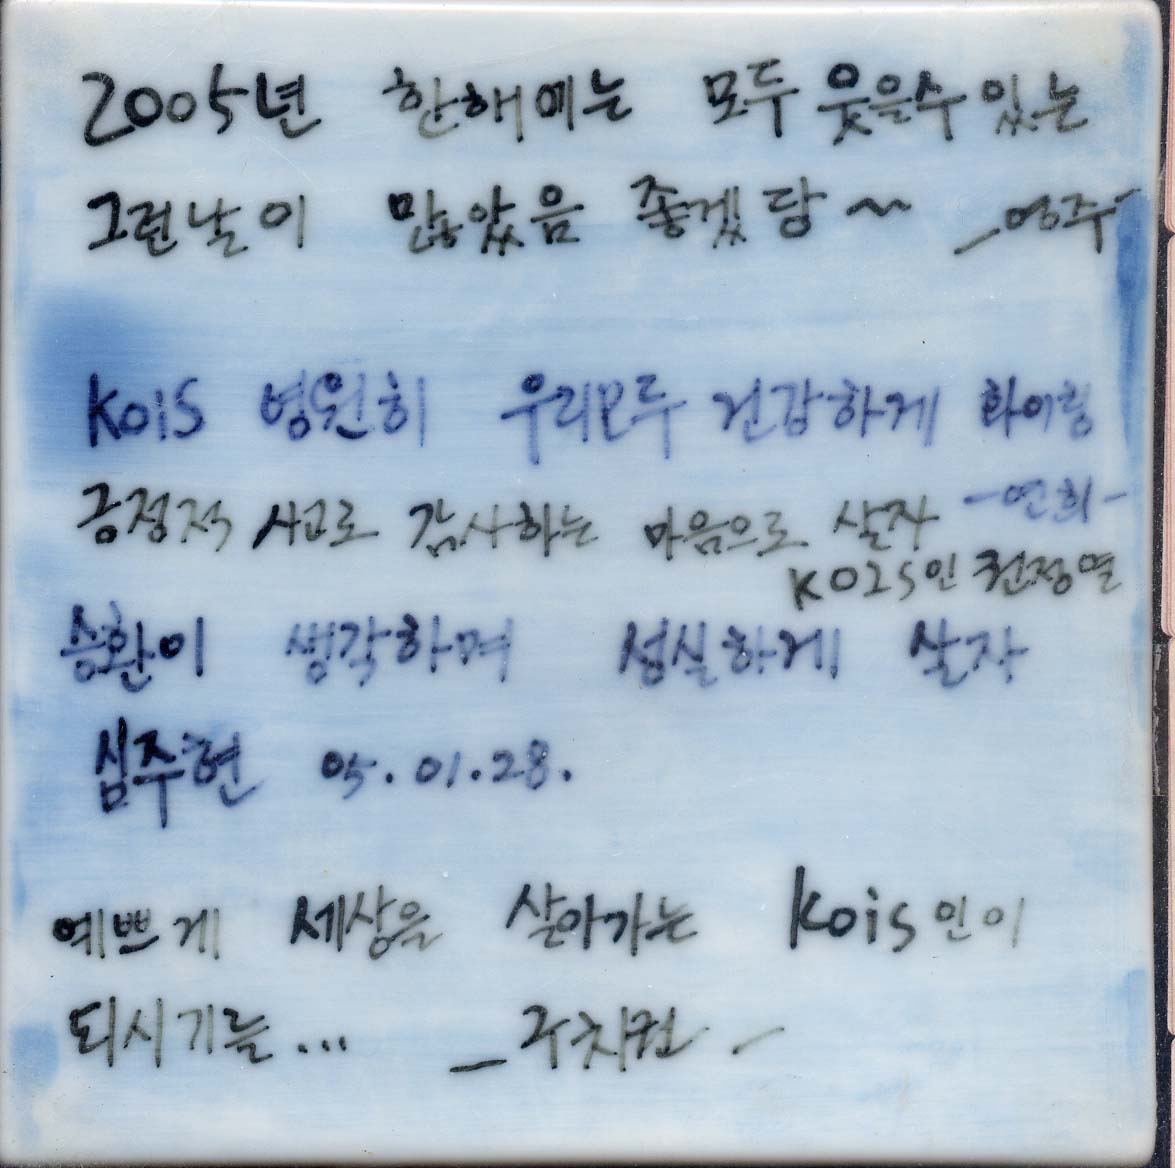 2005년 한해에는 모두 웃을수 있는
그런날이 많았음 좋겠당~ -영주-
KoiS 영원히 우리모두 건강하게 화이링
-연희-
긍정적 사고로 감사하는 마음으로 살자
KOIS인 권정열
승환이 생각하며 성실하게 살자
심주현 05.01.28.
예쁘게 세상을 살아가는 Kois인이
되시기늘... -구치권-